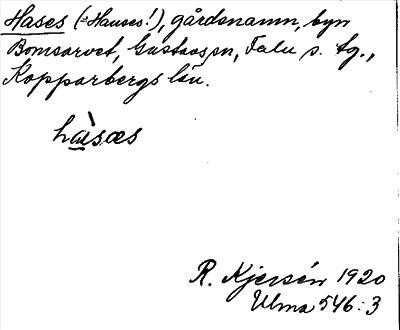 Hases (=Hanses!), gårdsnamn, byn
Bomsarvet, Gustavs sn, Falu s. tg.,
Kopparbergs län.
hàsæs
R. Kjersén 1920
Ulma 546:3